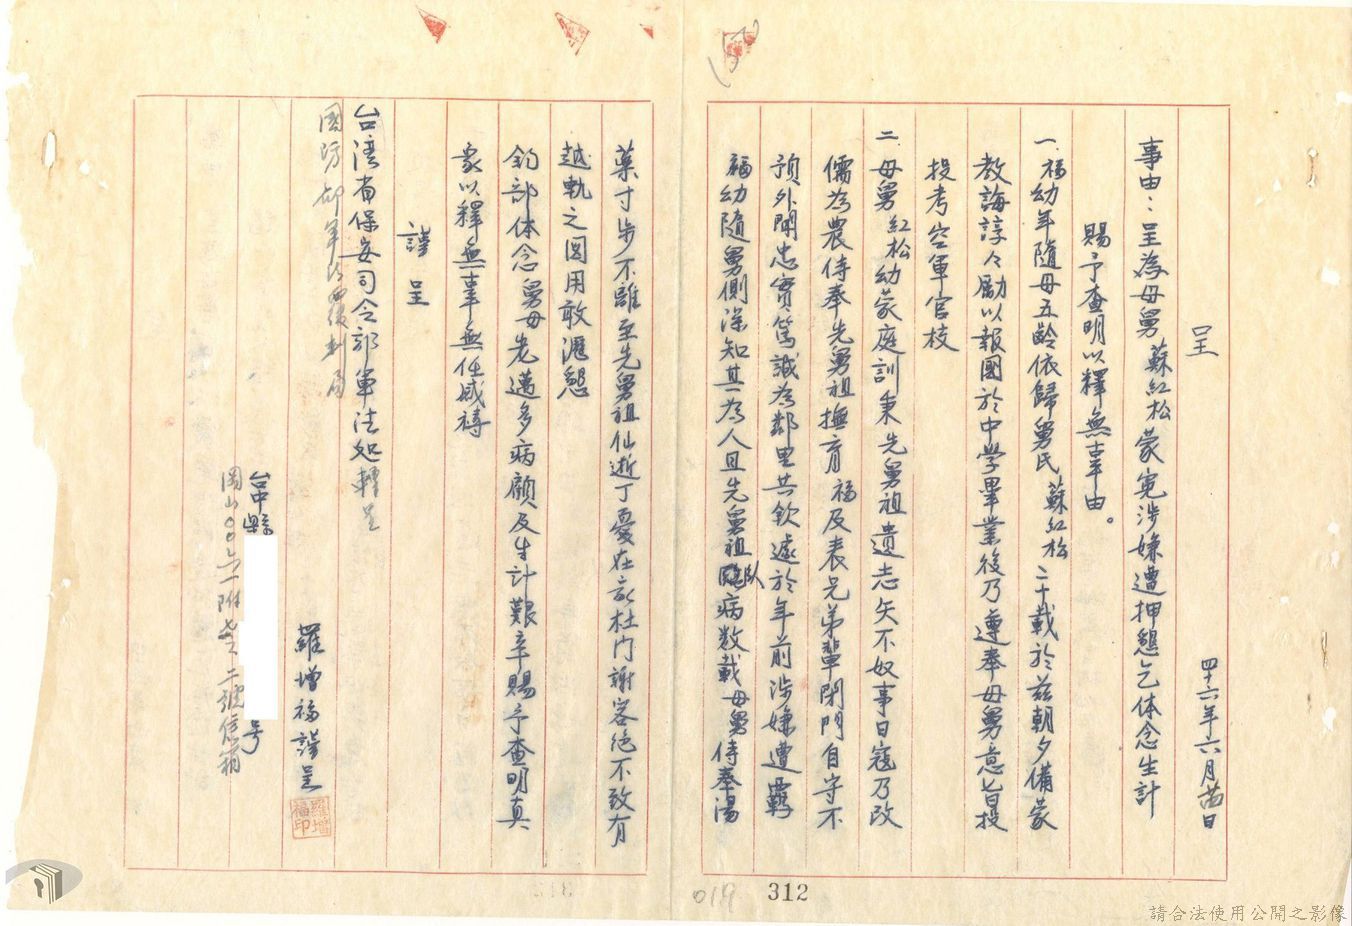 呈
四十六年六月 日
事由：呈為母舅蘇紅松蒙冤涉嫌遭押懇乞体念生計
賜予查明以釋無辜由。
一、福幼年隨母五齡依歸舅氏蘇紅松二十載於茲朝夕備蒙
教誨諄々勵以報國於中學畢業後乃遵奉母舅意旨投
投考空軍官校
二、母舅紅松幼蒙庭訓秉先舅祖遺志矢不奴事日寇乃改
儒為農侍奉先舅祖撫育福及表兄弟輩閉門自守不
預外聞忠實篤誠為鄰里共欽遽於年前涉嫌遭羈
福幼隨舅側深知其為人且先舅祖臥病数載母舅侍奉湯
葯寸步不離至先舅祖仙逝丁憂在家杜門謝客絕不致有
越軌之圖用敢瀝懇
鈞部体念舅母老邁多病顧及生計艱辛賜予查明真
象以釋無辜無任感禱
謹呈
台湾省保安司令部軍法処轉呈
國防部軍法覆判局
羅增福謹呈
羅增福印
台中縣 号
岡山 附 二號信箱
019
312
請合法使用公開之影像